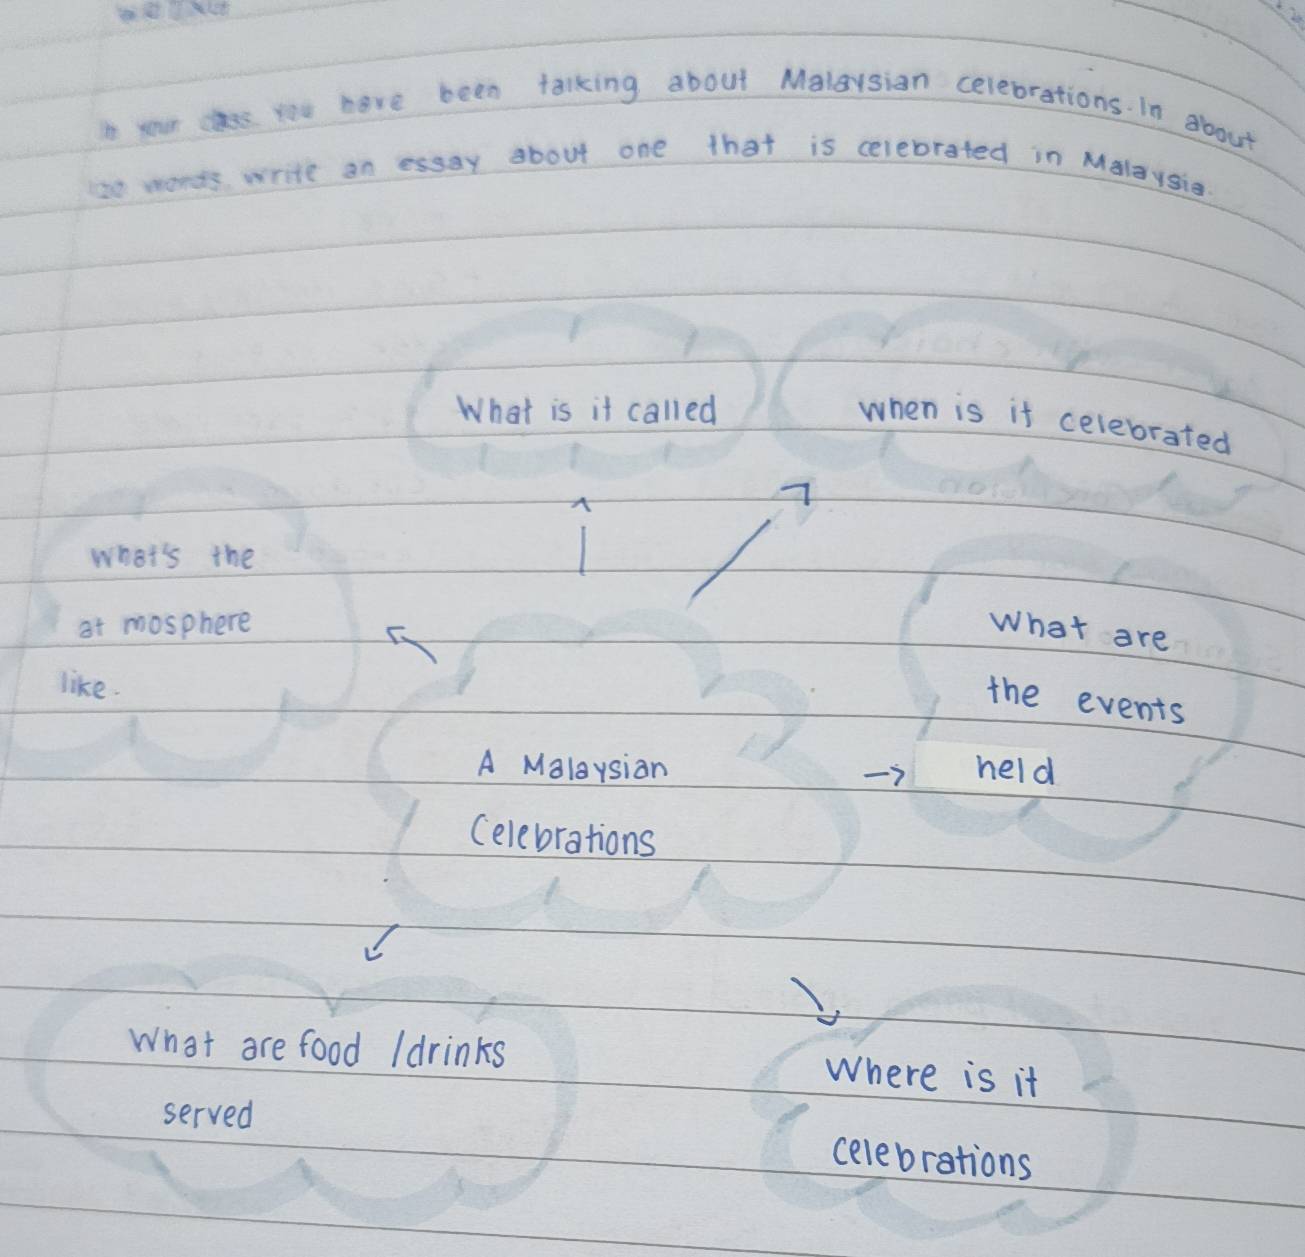 in your class you have been talking about Malaysian celebrations. In about
120 words, write an essay about one that is celebrated in Malaysia.
What is it called
when is it celebrated
What's the
at mosphere
like.
What are
the events
held
A Malaysian
Celebrations
What are food /drinks
served
Where is it
celebrations